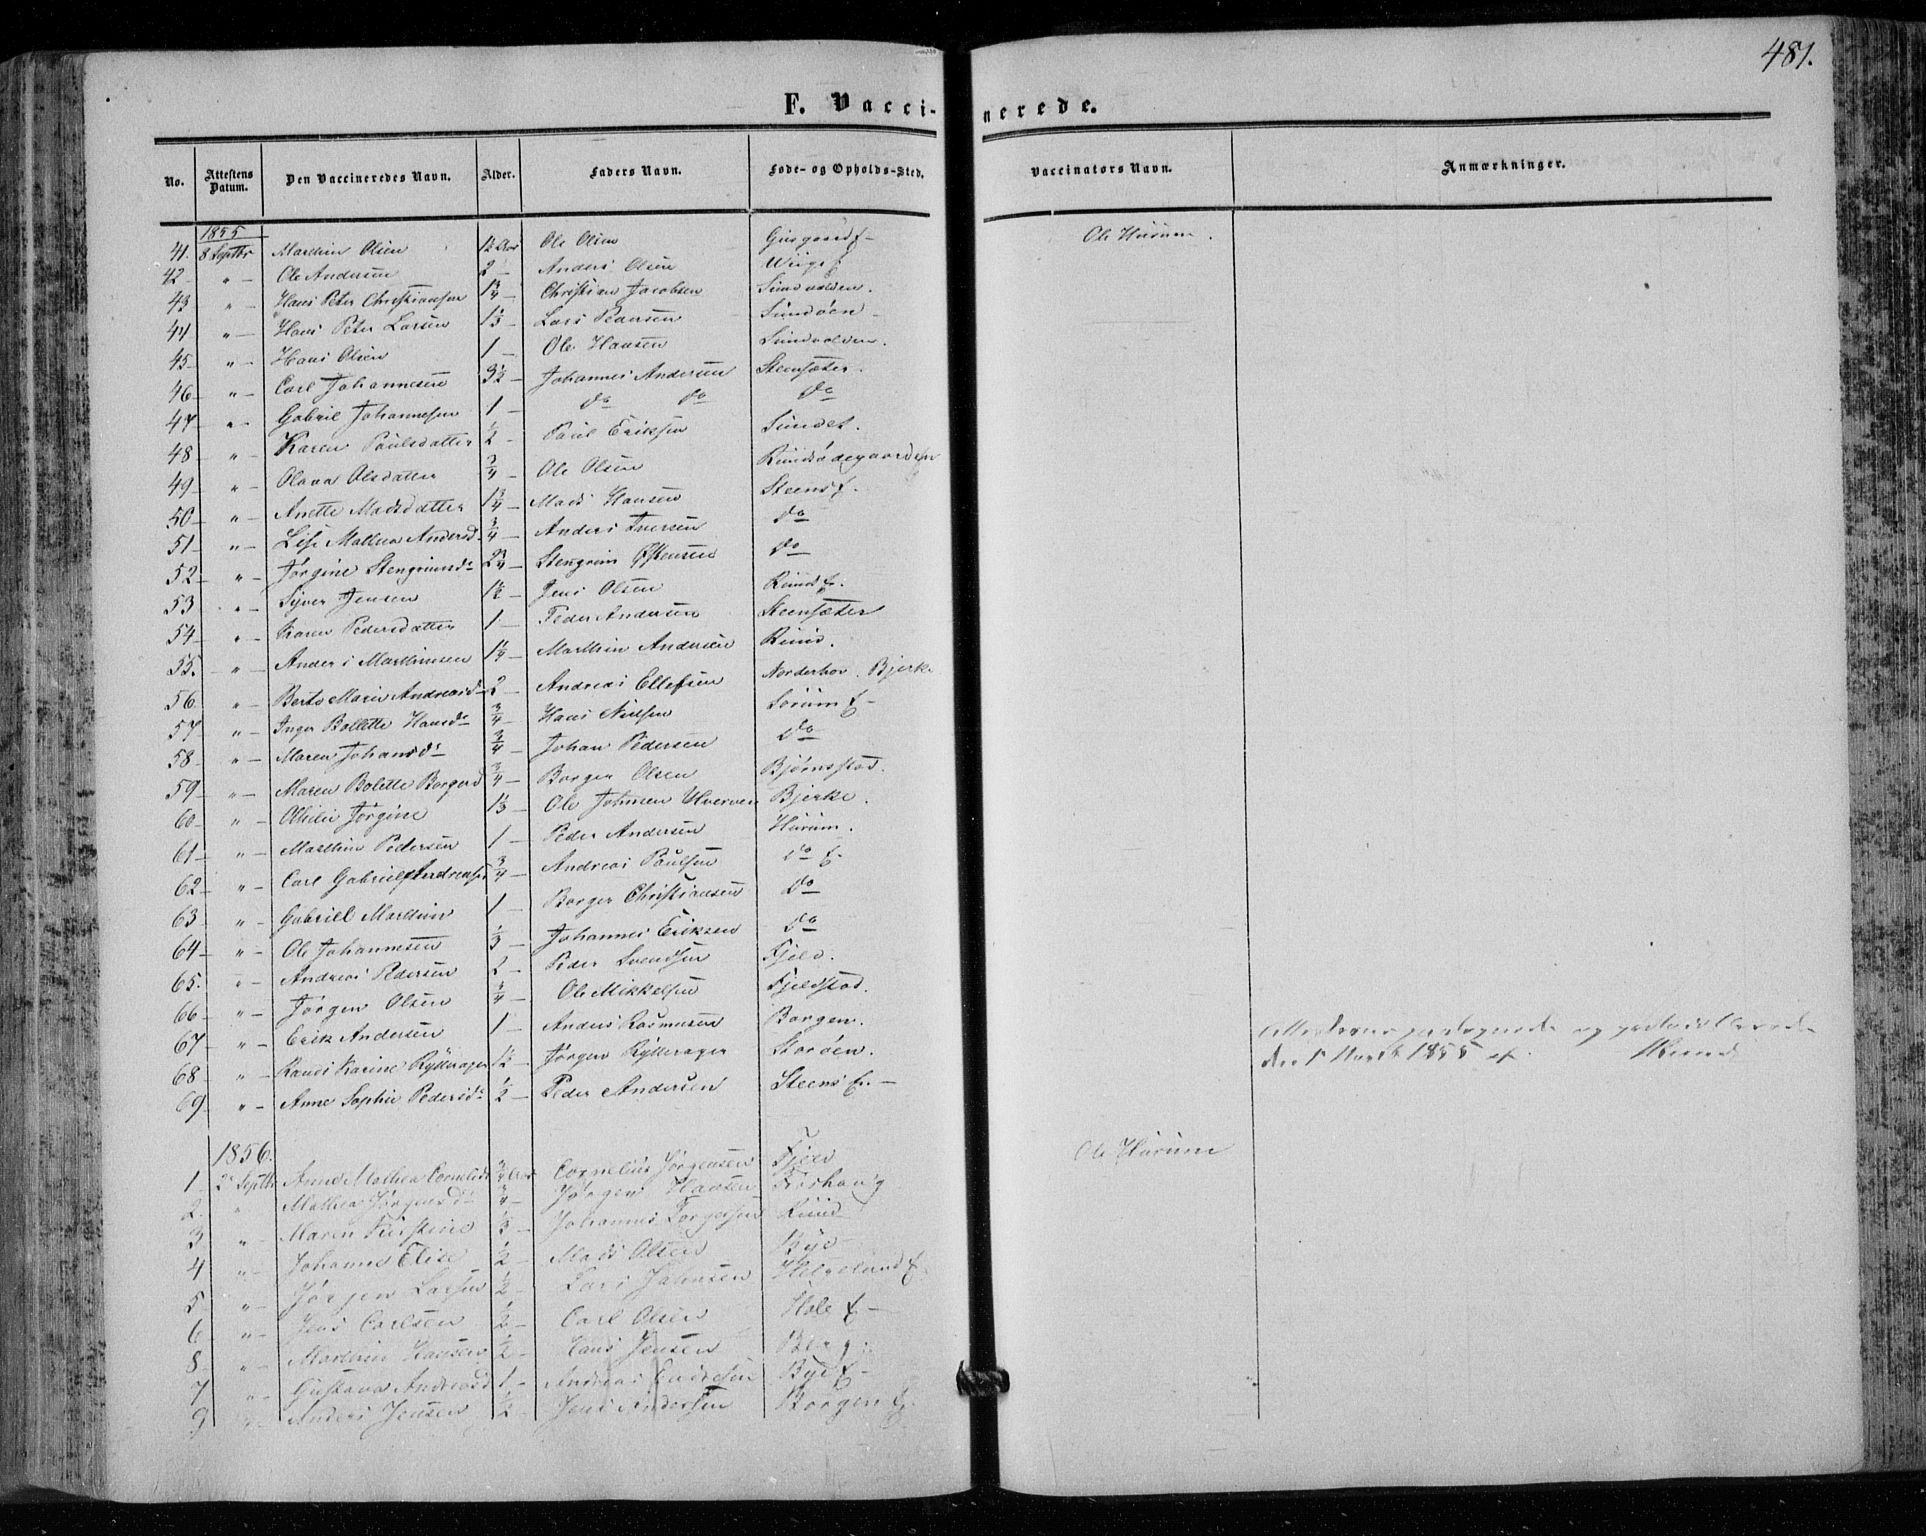 481.
F. Vaccinerede.
No. Attestens Datum. Den Vaccineredes Navn. Alder. Faders Navn. Føde- og Opholds-Sted. Vaccinators Navn. Anmærkninger.
1855
41. 8 Septbr Marthin Olsen Ole Olsen Ole Hurum.
42 " Ole Andersen 2 Anders Olsen
43 " Hans Peter Christiansen 1 3/4 Christian Jacobsen Sundvolden.
44 " Hans Peter Larsen 1 1/3 Lars Pedersen Sundøen
45 " Hans Olsen 1 Ole Hansen Sundvolden.
46 " Carl Johannesen 3 1/2 Johannes Andersen Steensæter.
47 " Gabriel Johannesen 1 do do do
48 " Karen Paulsdatter 1/2 Paul Eriksen Sundet.
49 " Olava Olsdatter 3/4 Ole Olsen Rudsødegaarden
50 " Anette Madsdatter 1 3/4 Mads Hansen Steens f.
51 " Lise Mathea Andersd. 3/4 Anders Iversen do
52 " Jørgine Stengrimsdr 2 3/4 Stengrim Østensen do
53 " Syver Jensen 1 1/2 Jens Olsen
54 " Karen Pedersdatter 1 Peder Andersen Steensæter
55. " Anders Marthinsen 1 1/4 Marthin Andersen Ruud.
56 " Berte Marie Andreasd 2 Andreas Ellefsen Norderhov. Bjerke
57 " Inger Bollette Hansdr 3/4 Hans Nielsen Sørum f
58 " Maren Johansdr 3/4 Johan Pedersen do
59 " Maren Bolette Borgersd 3/4 Borger Olsen Bjørnstad.
60 " Othilie Jørgine 1 1/3 Ole Johnsen Ulverven Bjerke.
61 " Marthin Pedersen 1 Peder Andersen Hurum.
62 " Carl Gabriel Andreasen 3/4 Andreas Paulsen do f.
63 " Gabriel Marthin 1 Borger Christiansen do
64 " Ole Johannesen 1/3 Johannes Eriksen do
65. " Andreas Pedersen 2 Peder Svendsen Fjeld.
66 " Jørgen Olsen 3/4 Ole Mikkelsen Fjeldstad.
67 " Erik Andersen 1 Anders Rasmusen Borgen.
68 " Randi Karine Rytterager 1 1/2 Jørgen Rytterager Storøen.
69 " Anne Sophie Pedersdr 1/2 Peder Andersen Steens f.
1856.
1 Septbr Anne Mathea Cornelidr Cornelius Jørgensen Fjeld Ole Hurum
2 " Mathea Jørgensdr Jørgen Hansen
3 " Maren Kirstine 1/3 Johannes Torgersen Ruud
4 " Johanne Elise 1/2 Mads Olsen Bye
5 " Jørgen Larsen 1/2 Lars Johnsen Helgeland f.
6 " Jens Carlsen 1/2 Carl Olsen Hole f
8 " Marthin Hansen 1/2 Hans Jensen Berg.
7 " Gustava Andreasd 1 Andreas Bye f
9 " Anders Jensen 1/2 Jens Andersen Borgen f.